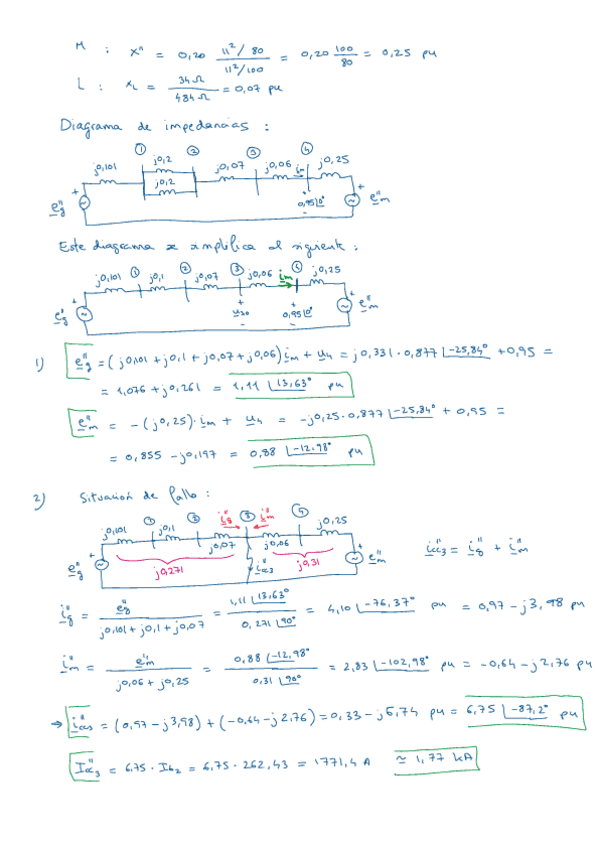 M : x" = 0,20 (11²/80)/(11²/100) = 0,20 100/80 = 0,25 pu
L : x_L = 34Ω/484Ω = 0,07 pu
Diagrama de impedancias :
① ② ③ ④
j0,101 j0,2 j0,07 j0,06 i_m j0,25
j0,2
+ +
e"_g 0,95|0° e"_m
Este diagrama se simplifica al siguiente :
j0,101 ① j0,1 ② j0,07 ③ j0,06 i_m ④ j0,25
+ + + +
e"_g u_30 0,95|0° e"_m
1) e"_g = (j0,101 + j0,1 + j0,07 + j0,06) i_m + u_4 = j0,331 · 0,877 |-25,84° + 0,95 =
= 1,076 + j0,261 = 1,11 |13,63° pu
e"_m = -(j0,25) · i_m + u_4 = -j0,25 · 0,877 |-25,84° + 0,95 =
= 0,855 - j0,197 = 0,88 |-12,98° pu
2) Situación de fallo :
① ② i"_g ③ i"_m ④
j0,101 j0,1 j0,07 j0,06 j0,25
+ +
e"_g j0,271 i"_cc3 j0,31 e"_m
i"_cc3 = i"_g + i"_m
i"_g = e"_g/(j0,101 + j0,1 + j0,07) = 1,11 |13,63°/0,271 |90° = 4,10 |-76,37° pu = 0,97 - j3,98 pu
i"_m = e"_m/(j0,06 + j0,25) = 0,88 |-12,98°/0,31 |90° = 2,83 |-102,98° pu = -0,64 - j2,76 pu
→ i"_cc3 = (0,97 - j3,98) + (-0,64 - j2,76) = 0,33 - j6,74 pu = 6,75 |-87,2° pu
I"_cc3 = 6,75 · I_b2 = 6,75 · 262,43 = 1771,4 A ≃ 1,77 kA